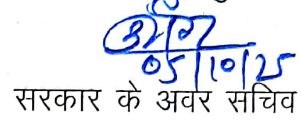 05/10/25
सरकार के अवर सचिव